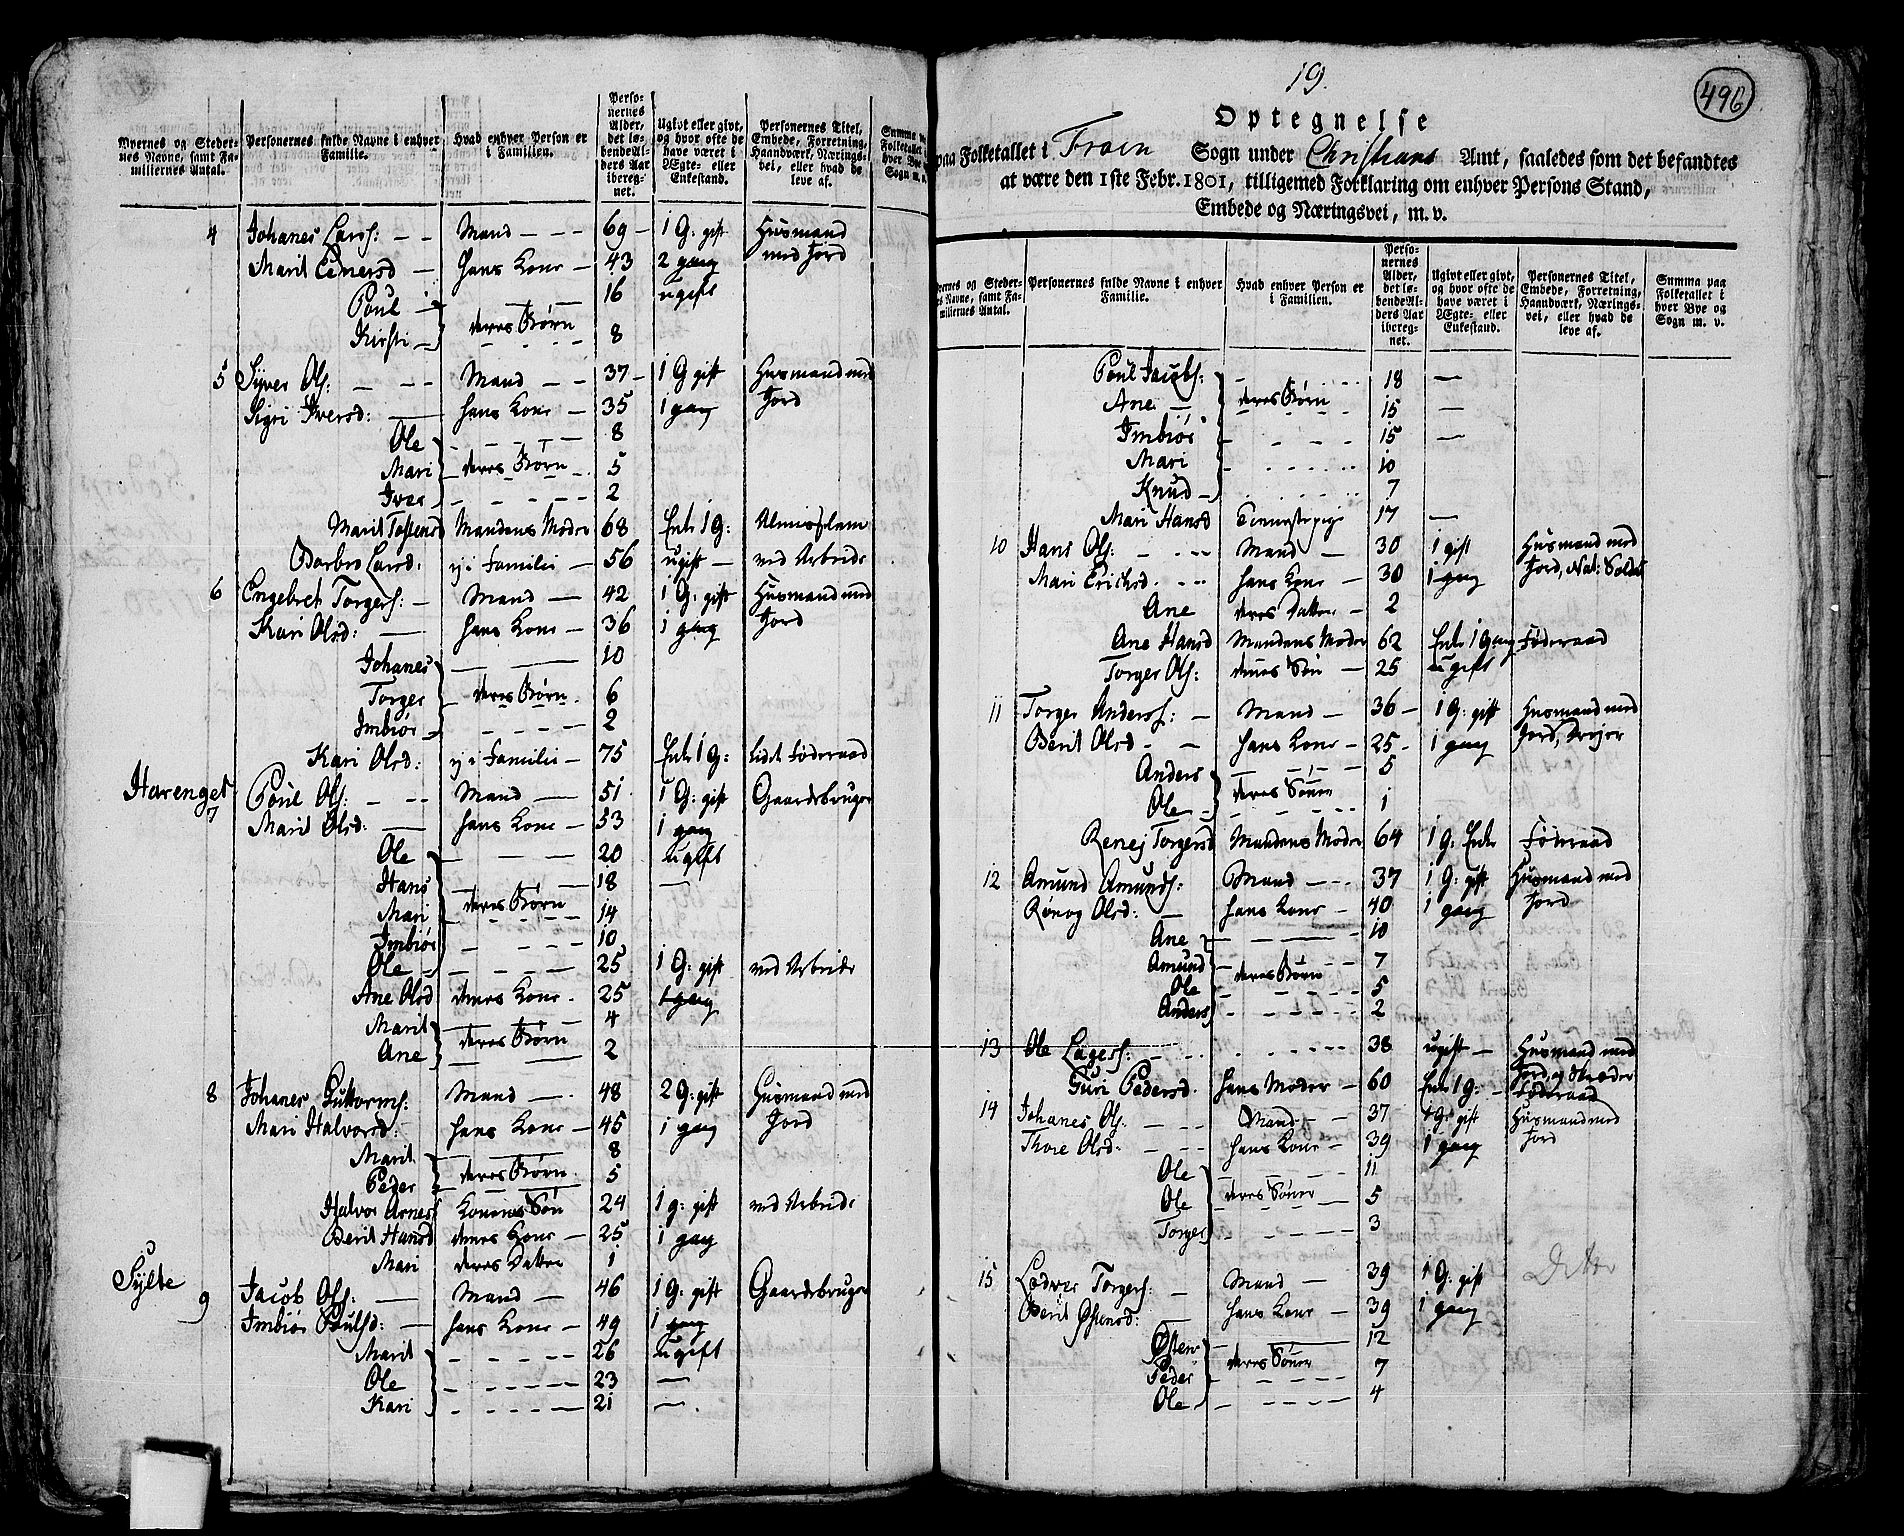 Byernes og Steder- nes Navne, samt Fa- miliernes Antal. | Personernes fulde Navne i enhver Familie. | Hvad enhver Person er i Familien. | Perso- nernes Alder, det lø- bende Al- ders Aar ibereg- net. | Ugivt eller givt, og hvor ofte de have været i Ægte- eller Enkestand. | Personernes Titel, Embede, Forretning, Haandværk, Nærings- vei, eller hvad de leve af. | Summa Folketallet hver Bye Sogn m. v.
4 Johanes Larss: Mand 69 1 G: gift Husmand
Marit Eenersd hans Kone 43 2 gang med Jord
Poul 16 ugift
Kirsti deres Børn 8
5 Syver Ols: Mand 37 1 G gift Husmand med
Sigri Iversd: hans Kone 35 1 gang Jord
Ole 8
Mari deres Børn 5
Iver 2
Marit Tostensd Mandens Moder 68 Enke 1 G: Almisselem
Barbro Larsd: ej i Familie 56 ugift ved Arbeide
6 Engebret Torgers: Mand 42 1 G: gift Husmand med
Kari Olsd: hans Kone 36 1 gang Jord
Johanes 10
Torger deres Børn 6
Imbiør 2
Kari Olsd: ej i Familie 75 Enke 1 G: lidet Føderaad
Harenget 7 Poul Ols: Mand 51 1 G: gift Gaardsbruger
Marit Olsd: hans Kone 53 1 gang
Ole 20 ugift
Hans 18
Mari deres Børn 14
Imbiør 10
Ole 25 1 G: gift ved Arbeide
Ane Olsd denes Kone 25 1 gang
Marit 4
Ane deres Børn 2
8 Johanes Guttorms: Mand 48 2 G: gift Husmand med
Mari Halvorsd: hans Kone 45 1 gang Jord
Marit 8
Peder deres Børn 5
Halvor Arness Konens Søn 24 1 g: gift ved Arbeide
Berit Hansd denes Kone 25 1 gang
Mari deres Datter 1
Sylte 9 Jacob Ols: Mand 46 1 G: gift Gaardsbruger
Imbiør Poulsd: hans Kone 49 1 gang
Marit 26 ugift
Ole 23
Kari 21
19.
496
Optegnelse
paa Folketallet i Froen Sogn under Christians Amt, saaledes som det befandtes
at være den 1ste Febr. 1801, tilligemed Forklaring om enhver Persons Stand,
Embede og Næringsvei, m. v.
Steder- Navne, samt Fa- miliernes Antal. | Personernes fulde Navne i enhver Familie. | Hvad enhver Person er i Familien. | Perso- nernes Alder, det lø- bende Al- ders Aar ibereg- net. | Ugivt eller givt, og hvor ofte de have været i Ægte- eller Enkestand. | Personernes Titel, Embede, Forretning, Haandværk, Nærings- vei, eller hvad de leve af. | Summa paa Folketallet i hver Bye og Sogn m. v.
Poul Jacobs: 18
Ane deres Børn 15
Imbiør 15
Mari 10
Knud 7
Mari Hansd Tienestepige 17
10 Hans Ols: Mand 30 1 gift Husmand med
Mari Ericksd. hans Kone 30 1 gang Jord, Nat: Soldat
Ane deres Datter 2
Ane Hansd Mandens Moder 62 Enke 1 gang Føderaad
Torger Ols: denes Søn 25 ugift
11 Torger Anderss: Mand 36 1 G: gift Husmand med
Berit Olsd hans Kone 25 1 gang Jord,
Anders 5
Ole deres Sønner 1
Renej Torgersd Mandens Moder 64 1 G: Enke Føderaad
12 Amund Amunds: Mand 37 1 G: gift Husmand med
Rønog Olsd: hans Kone 40 1 gang Jord
Ane 10
Amund deres Børn 7
Ole 5
Anders 2
13 Ole Lages: 38 ugift Husmand med
Jord og Skræder
Guri Pedersd. hans Moder 60 Enke 1 G: Føderaad
14 Johanes Ols: Mand 37 1 G: gift Husmand med
Thore Olsd: hans Kone 39 1 gang Jord
Ole 11
Ole deres Sønner 5
Torger 3
15 Lodver Torgers: Mand 39 1 G: gift Ditto
Berit Østensd: hans Kone 39 1 gang
Østen 12
Peder deres Sønner 7
Ole 4